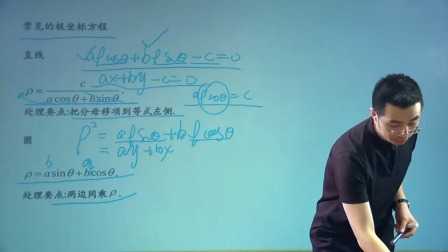 常见的极坐标方程
直线
aρcosθ+bρsinθ-c=0
ax+by-c=0
ρ=c/(acosθ+bsinθ).
aρcosθ=c
处理要点:把分母移项到等式左侧.
圆
ρ²=aρsinθ+bρcosθ
=ay+bx
b a
ρ=asinθ+bcosθ.
处理要点:两边同乘ρ.